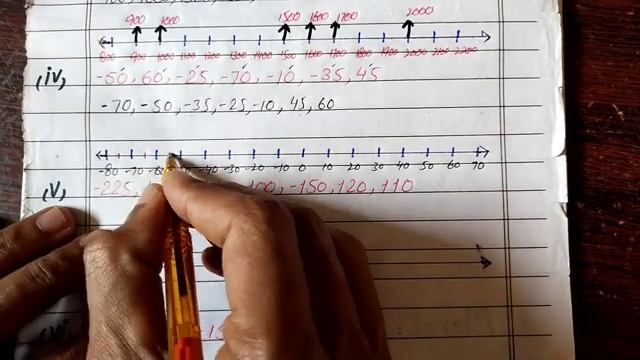 900 1000 1500 1600 1700 2000
800 900 1000 1100 1200 1300 1400 1500 1600 1700 1800 1900 2000 2100 2200
(iv) -50, 60, -25, -70, -10, -35, 45
-70, -50, -35, -25, -10, 45, 60
-80 -70 -40 -30 -20 -10 0 10 20 30 40 50 60 70
(v) -225, -150, 120, 110